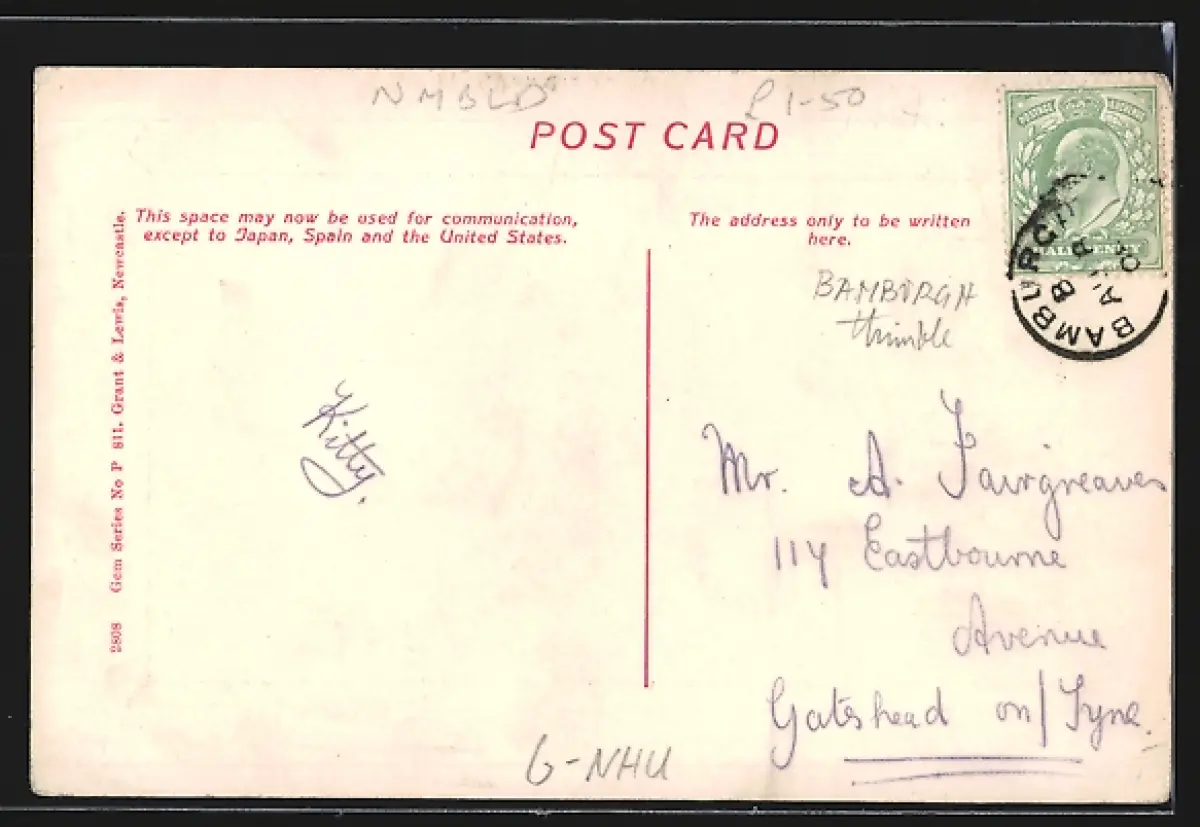 NMBLD
£1-50
POST CARD
This space may now be used for communication,
except to Japan, Spain and the United States.
The address only to be written
here.
2808 Gem Series No P 811. Grant & Lewis, Newcastle.
HALFPENNY
BAMBURGH
BAMBURGH
thimble
Kitty.
Mr. A. Fairgreaves
114 Eastbourne
Avenue
Gateshead on/Tyne.
G-NHU